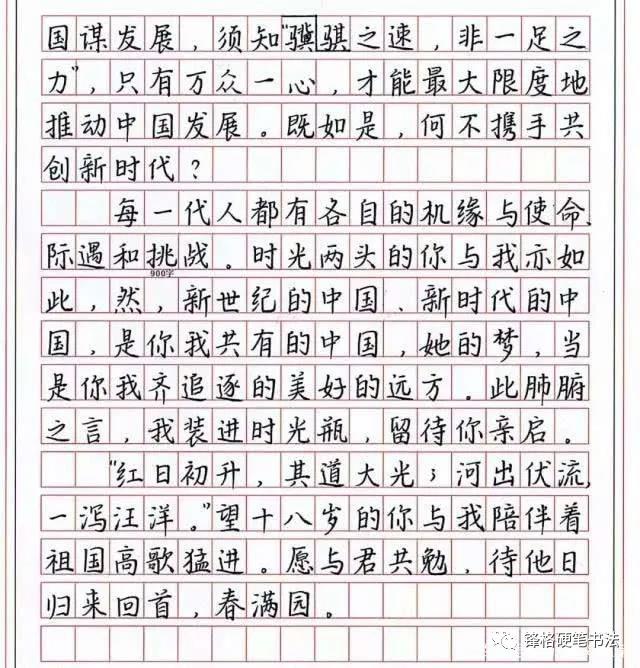 国谋发展，须知“骥骐之速，非一足之
力”，只有万众一心，才能最大限度地
推动中国发展。既如是，何不携手共
创新时代？
每一代人都有各自的机缘与使命、
际遇和挑战。时光两头的你与我亦如
900字
此，然，新世纪的中国、新时代的中
国，是你我共有的中国，她的梦，当
是你我齐追逐的美好的远方。此肺腑
之言，我装进时光瓶，留待你亲启。
“红日初升，其道大光；河出伏流，
一泻汪洋。”望十八岁的你与我陪伴着
祖国高歌猛进。愿与君共勉，待他日
归来回首，春满园。
锋格硬笔书法